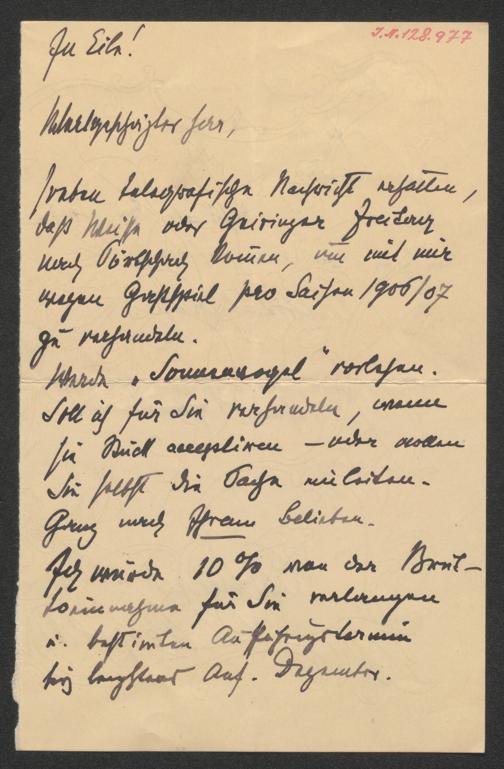 I.N.128.977
In Eile!
Sehrgeschätzter Herr,
soeben telegrafische Nachricht erhalten,
daß Weisse oder Geiringer Freitag
nach Pörtschach kommen, um mit mir
wegen Gastspiel pro Saison 1906/07
zu verhandeln.
Werde „Sonnenvogel" vorlesen.
Soll ich für Sie verhandeln, wenn
sie Stück acceptiren – oder wollen
Sie selbst die Sache einleiten.
Ganz nach Ihrem Belieben.
Ich würde 10% von der Brut-
toeinnahme für Sie verlangen
u. bestimten Aufführungstermin
bis längstens Anf. Dezember.